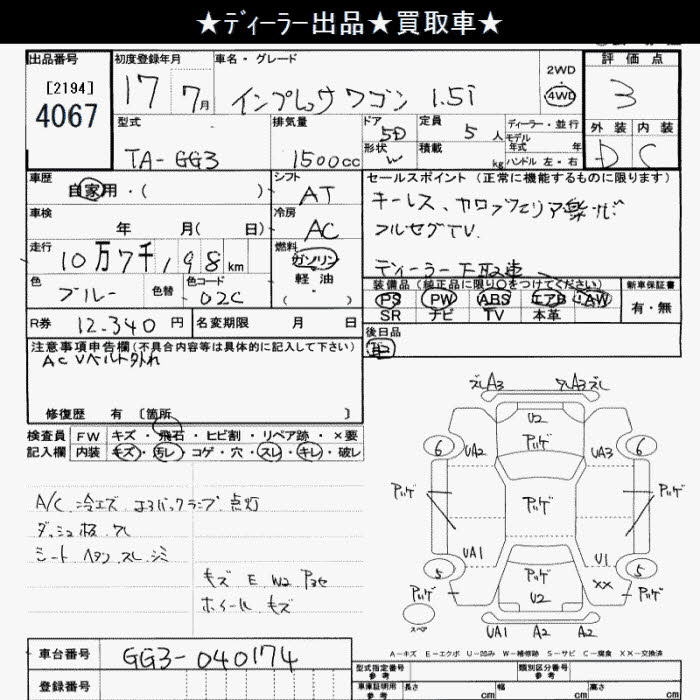 ★ディーラー出品★買取車★
出品番号
[2194]
4067
初度登録年月
17 7月
車名・グレード
インプレッサワゴン 1.5i
2WD
・
4WD
評価点
3
外装 内装
D C
型式
TA-GG3
排気量
1500cc
ドア 5D
形状 W
定員 5人
積載 kg
ディーラー・並行
モデル年式 年
ハンドル 左・右
車歴
自家用・( )
シフト
AT
車検
年 月( 日)
冷房
AC
走行
10万7千198km
燃料
ガソリン
軽油
・
( )
色
ブルー
色替
色コード
02C
セールスポイント(正常に機能するものに限ります)
キーレス、カロッツェリア楽ナビ
フルセグTV.
ディーラー下取車
装備品(純正品に限り○をつけてください)
PS PW ABS エアB AW
SR ナビ TV 本革
新車保証書
有・無
R券 12,340円
名変期限 月 日
後日品
注意事項申告欄(不具合内容等は具体的に記入して下さい)
AC Vベルト外れ
修復歴 有 〔箇所 〕
検査員
記入欄
FW キズ・飛石・ヒビ割・リペア跡・×要
内装 キズ・汚レ・コゲ・穴・スレ・キレ・破レ
A/C 冷エズ
ランプ 点灯
シート ヘタリ スレ シミ
キズ E W2
ホイール キズ
ズレA3
A3ズレ
U2
6
UA2
UA3
6
UA1
U1
××
5
5
U2
スペア
UA1 A2 A2
A-キズ E-エクボ U-凹み W-補修跡 S-サビ C-腐食 ××-交換済
車台番号
GG3-040174
登録番号
型式指定番号
参考
類別区分番号
参考
車庫証明用
参考
長さ cm
幅 cm
高さ cm